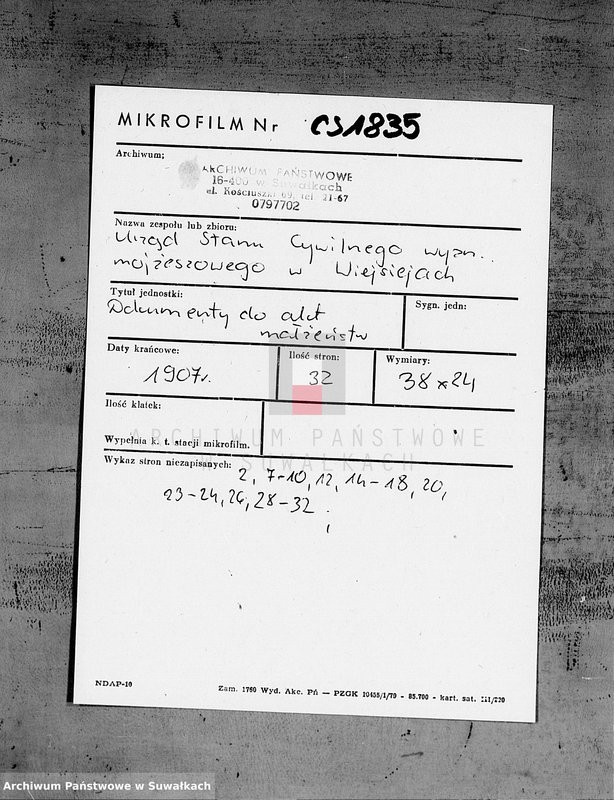 MIKROFILM Nr CS1835
Archiwum;
ARCHIWUM PAŃSTWOWE
16-400 w Suwałkach
ul. Kościuszki 69, tel 21-67
0797702
Nazwa zespołu lub zbioru:
Urząd Stanu Cywilnego wyzn..
mojżeszowego w Wiejsiejach
Tytuł jednostki:
Sygn. jedn:
Dokumenty do akt
małżeństw
Daty krańcowe:
Ilość stron:
Wymiary:
1907r.
32
38x24
Ilość klatek:
Wypełnia k. t. stacji mikrofilm.
ARCHIWUM PAŃSTWOWE
W SUWAŁKACH
Wykaz stron niezapisanych:
2, 7-10, 12, 14-18, 20,
23-24, 26, 28-32
NDAP-10
Zam. 1760 Wyd. Akc. Pń — PZGK 10455/1/79 - 85.700 - kart. sat. III/220
Archiwum Państwowe w Suwałkach